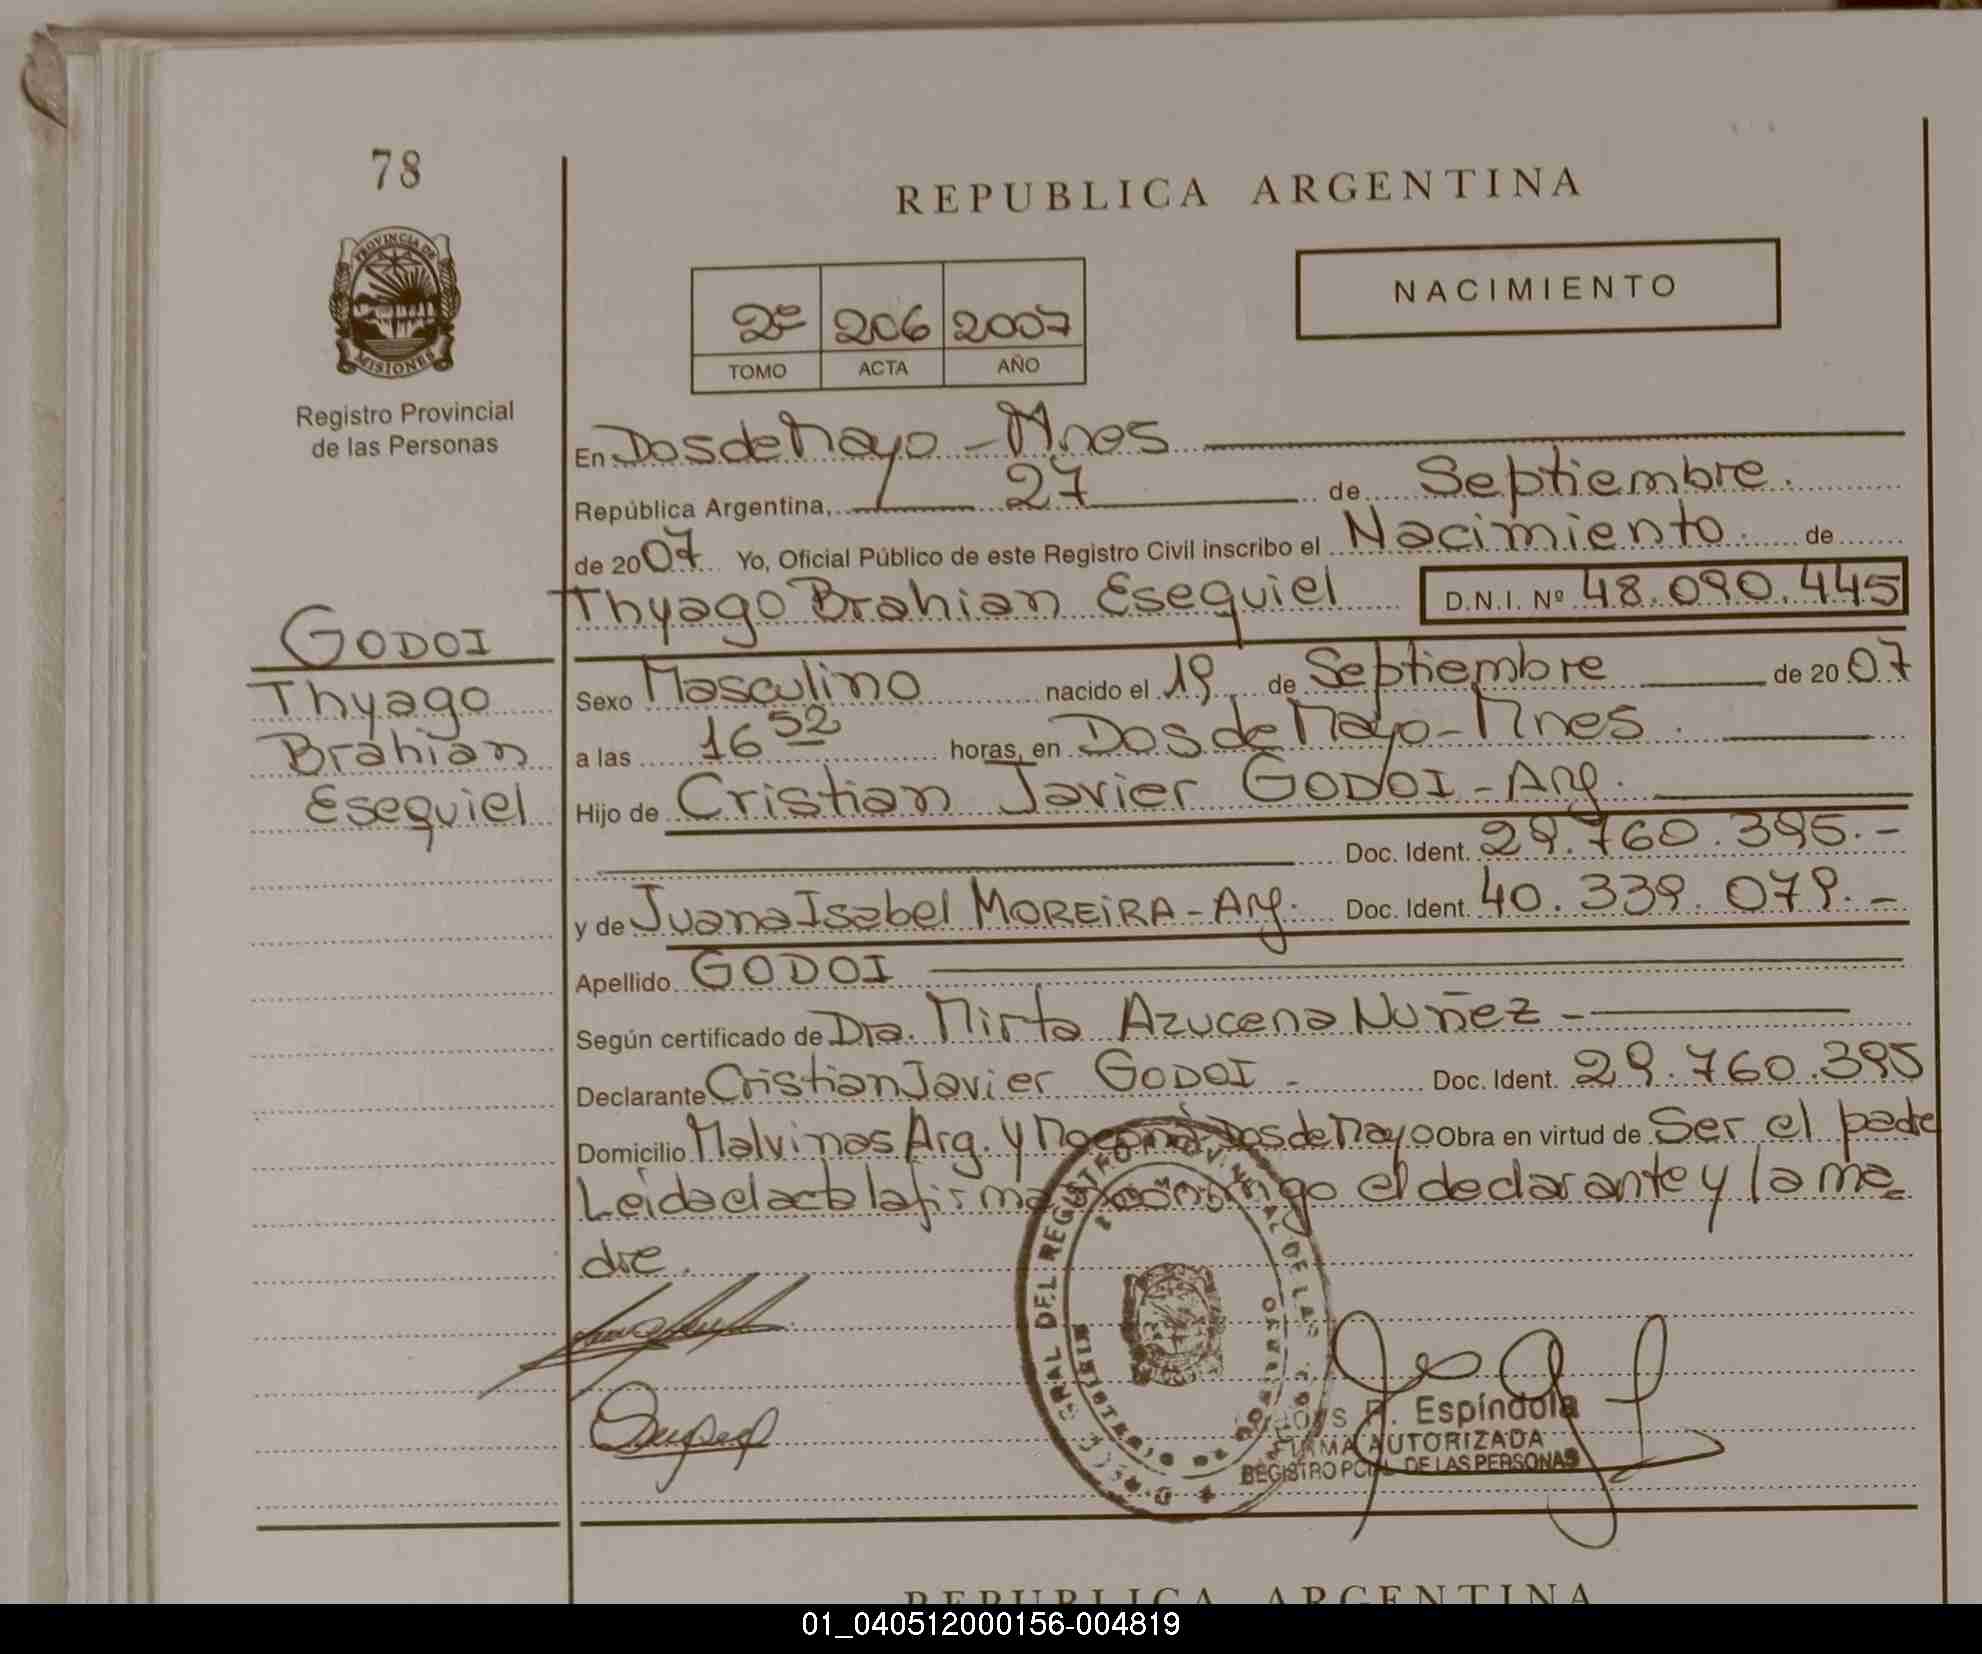 78
REPUBLICA ARGENTINA
PROVINCIA DE
MISIONES
NACIMIENTO
2º 206 2007
TOMO ACTA AÑO
Registro Provincial
de las Personas
En Dos de Mayo - Mnes
República Argentina, 27 de Septiembre.
de 2007 Yo, Oficial Público de este Registro Civil inscribo el Nacimiento de
Thyago Brahian Esequiel D.N.I. Nº 48.090.445
GODOI
Thyago
Brahian
Esequiel
Sexo Masculino nacido el 19 de Septiembre de 2007
a las 16 52 horas, en Dos de Mayo - Mnes.
Hijo de Cristian Javier GODOI - Arg.
Doc. Ident. 29.760.395.-
y de Juana Isabel MOREIRA - Arg. Doc. Ident. 40.339.079.-
Apellido GODOI
Según certificado de Dra. Mirta Azucena Nuñez -
Declarante Cristian Javier GODOI - Doc. Ident. 29.760.395
Domicilio Malvinas Arg. y Dos de Mayo Obra en virtud de Ser el padre
Leida el acta la firma el declarante y la ma
dre.
DEL REGISTRO PROVINCIAL DE LAS
MINISTERIO DE GOBIERNO
Espíndola
FIRMA AUTORIZADA
REGISTRO PCIAL. DE LAS PERSONAS
REPUBLICA ARGENTINA
01_040512000156-004819